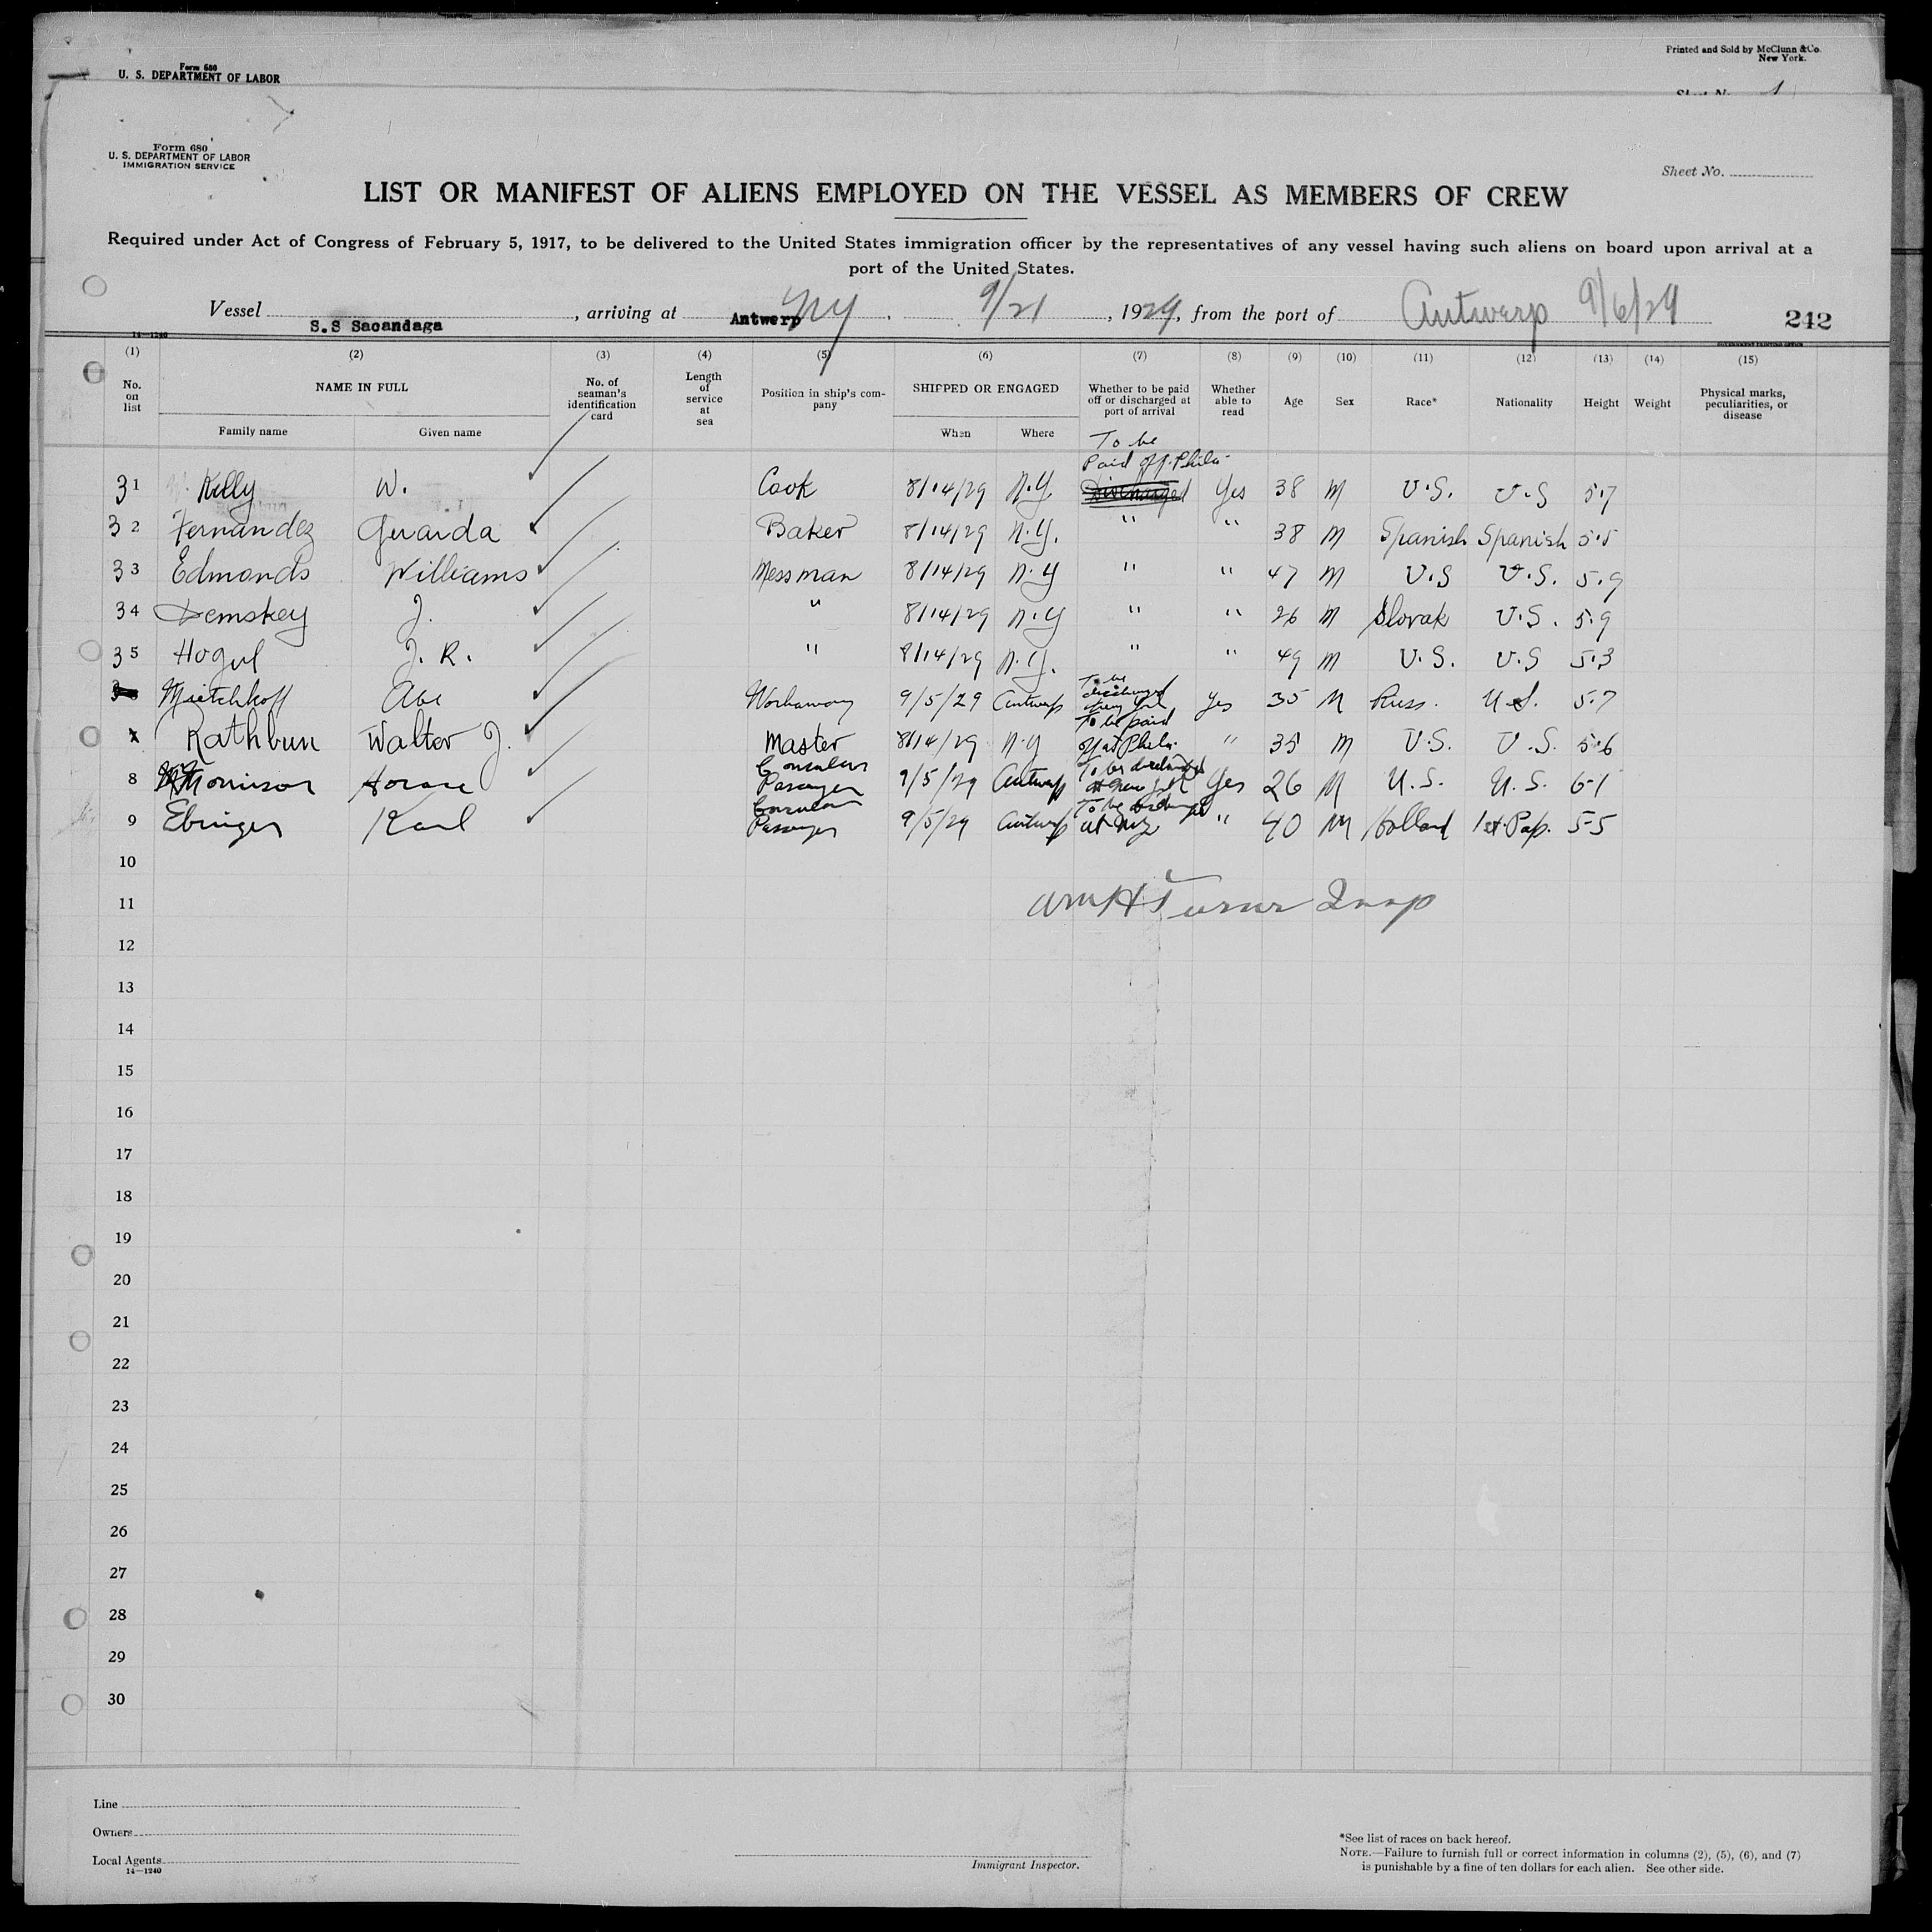 Form 680
U. S. DEPARTMENT OF LABOR
Printed and Sold by McClunn & Co.
New York.
Form 680
U. S. DEPARTMENT OF LABOR
IMMIGRATION SERVICE
Sheet No.
LIST OR MANIFEST OF ALIENS EMPLOYED ON THE VESSEL AS MEMBERS OF CREW
Required under Act of Congress of February 5, 1917, to be delivered to the United States immigration officer by the representatives of any vessel having such aliens on board upon arrival at a
port of the United States.
Vessel S.S Sacandaga, arriving at Antwerp NY 9/21, 1929, from the port of Antwerp 9/6/29 242
14—1240
(1) (2) (3) (4) (5) (6) (7) (8) (9) (10) (11) (12) (13) (14) (15)
No. on list NAME IN FULL No. of seaman's identification card Length of service at sea Position in ship's company SHIPPED OR ENGAGED Whether to be paid off or discharged at port of arrival Whether able to read Age Sex Race* Nationality Height Weight Physical marks, peculiarities, or disease
Family name Given name When Where
To be
Paid off Phila
31 Kelly W. Cook 8/14/29 N.Y. Discharged Yes 38 M U.S. U.S 5.7
32 Fernandez Gerarda Baker 8/14/29 N.Y. " " 38 M Spanish Spanish 5.5
33 Edmonds Williams Messman 8/14/29 N.Y " " 47 M U.S U.S. 5.9
34 Demskey J. " 8/14/29 N.Y " " 26 M Slovak U.S. 5.9
35 Hogul J. R. " 8/14/29 N.Y. " " 49 M U.S. U.S 5.3
Abe Workaway 9/5/29 Antwerp To be discharged New York Yes 35 M Russ. U.S. 5.7
Rathbun Walter J. Master 8/14/29 N.Y To be paid off at Phila. " 35 M U.S. U.S. 5.6
8 Morrison Horace Consular Passenger 9/5/29 Antwerp To be discharged at New York Yes 26 M U.S. U.S. 6-1
9 Ebinger Karl Consular Passenger 9/5/29 Antwerp To be discharged at NY " 40 M Holland 1st Pap. 5-5
10
11 Wm H Turner Insp
12
13
14
15
16
17
18
19
20
21
22
23
24
25
26
27
28
29
30
Line
Owners
Local Agents
14—1240
Immigrant Inspector.
*See list of races on back hereof.
NOTE.—Failure to furnish full or correct information in columns (2), (5), (6), and (7)
is punishable by a fine of ten dollars for each alien. See other side.